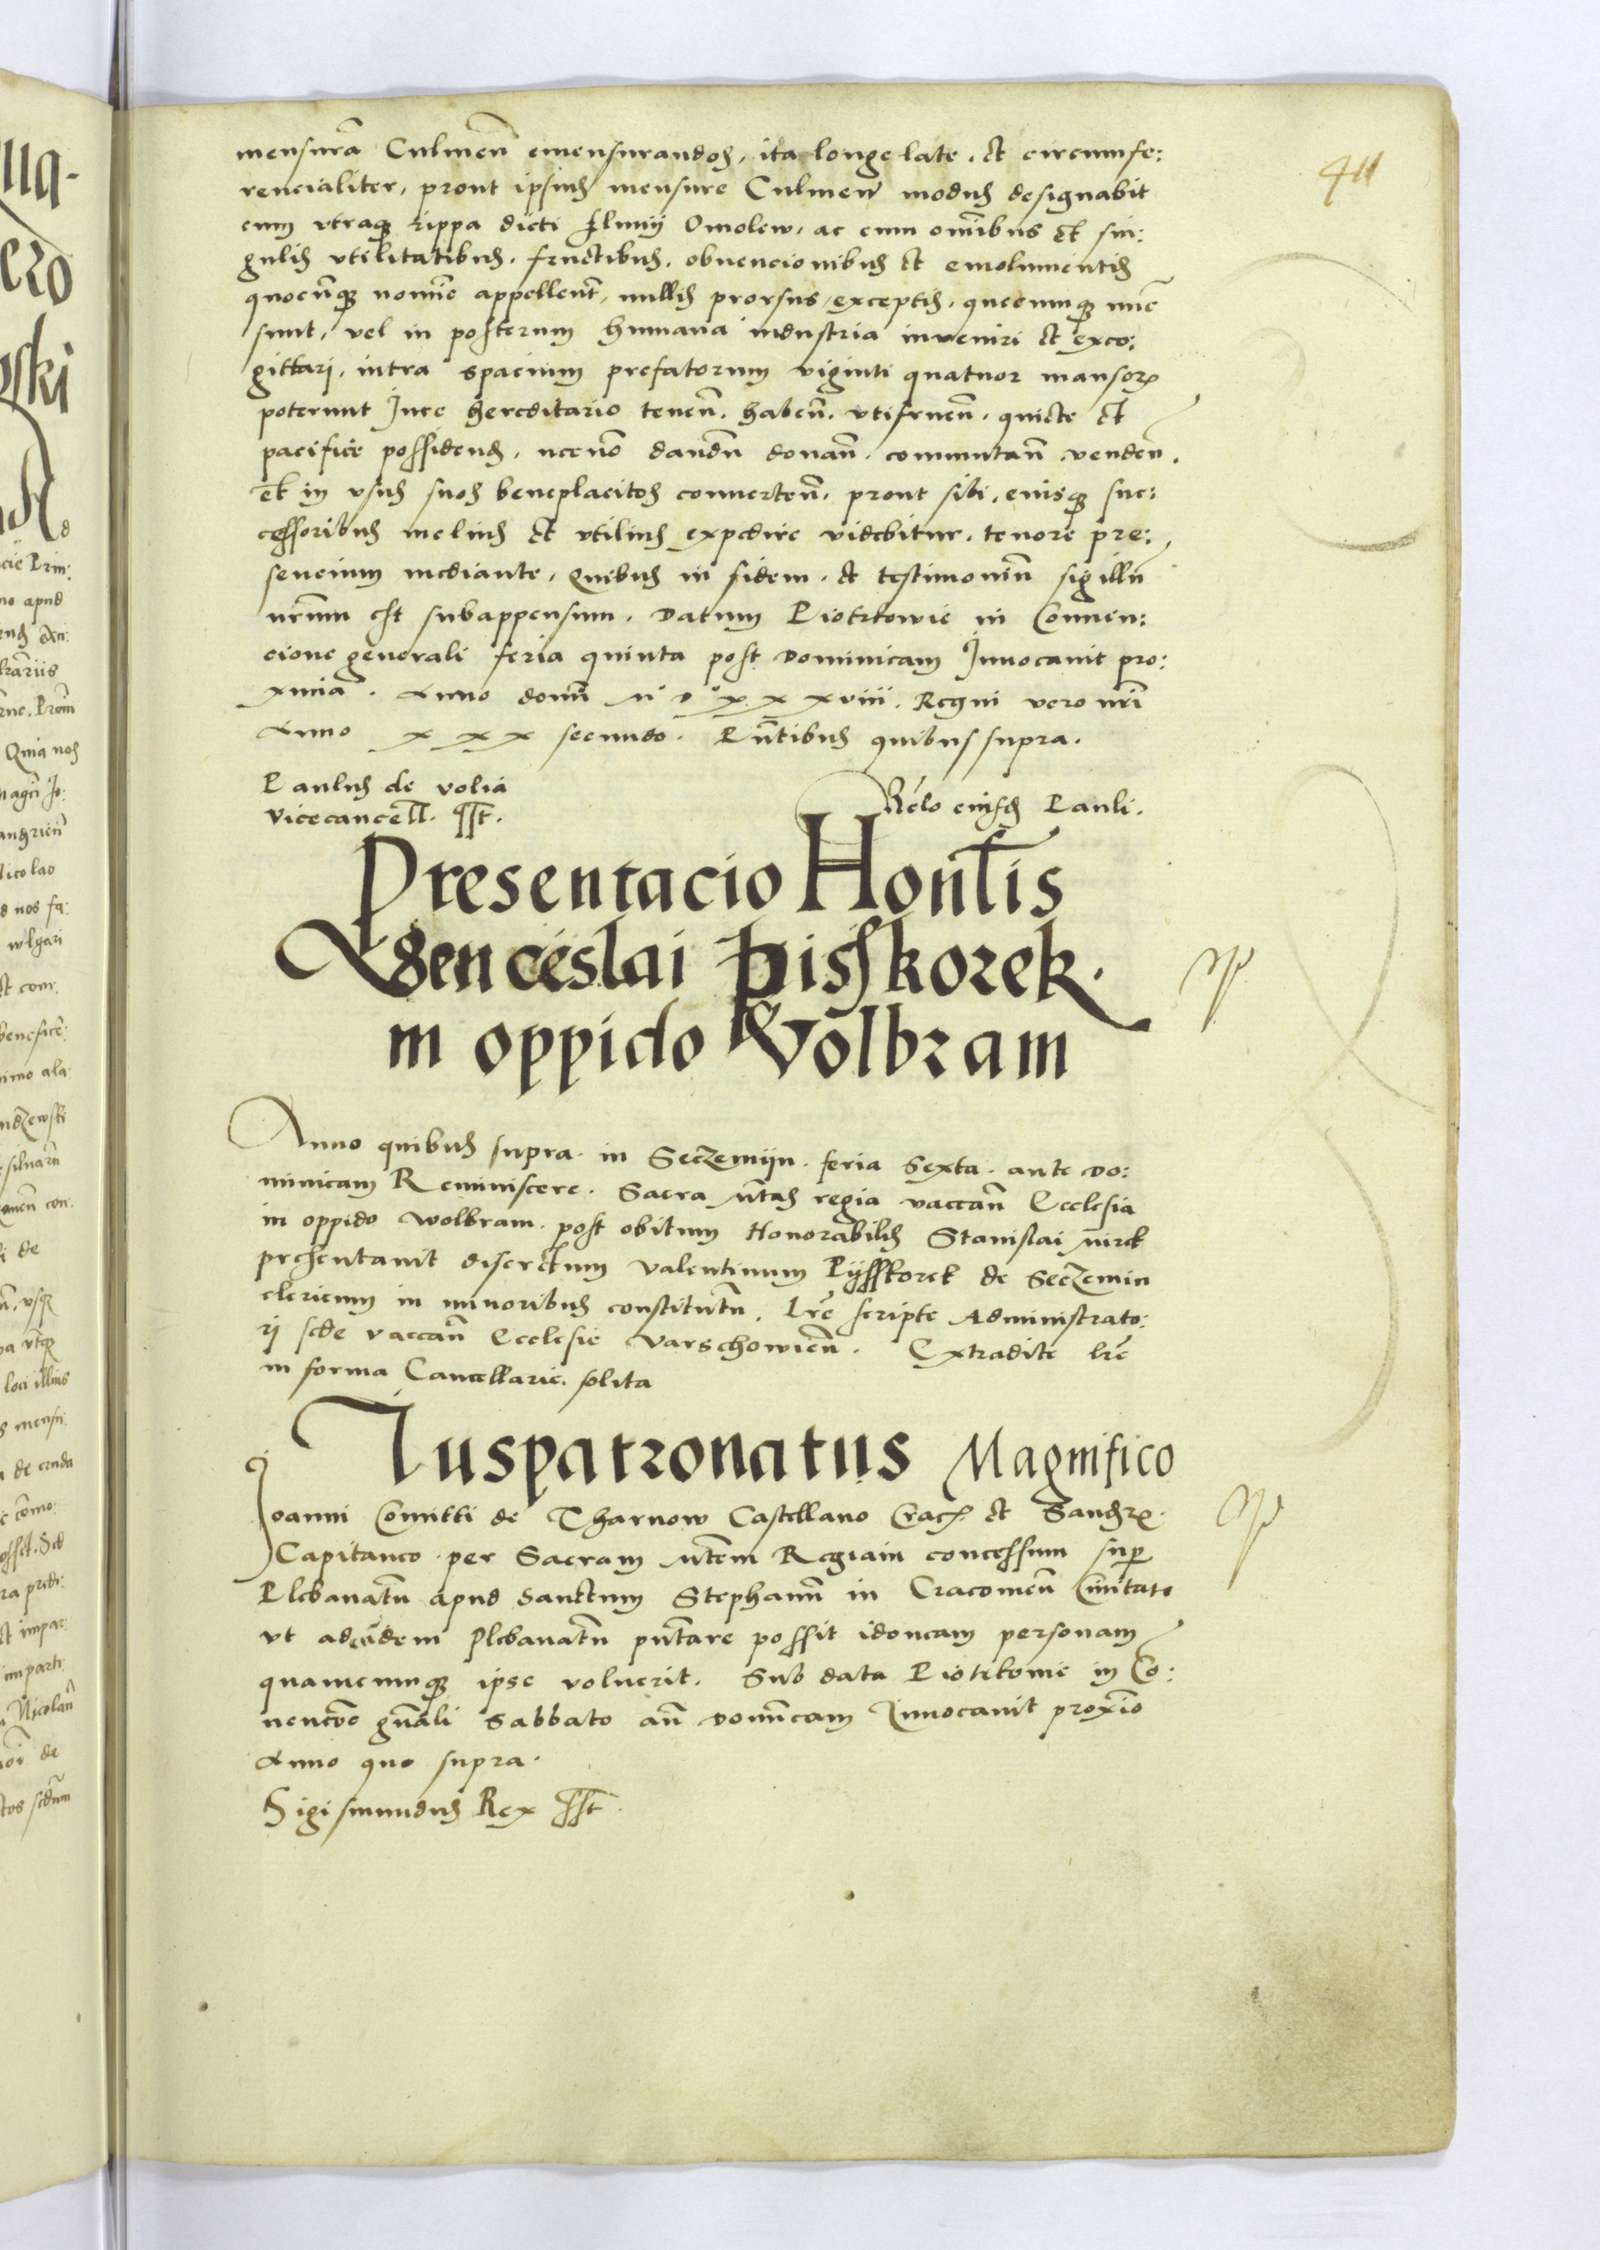 411
mensurã Culmeñ emensurandos, ita longe late, et circumfe:
rencialiter, prout ipsius mensure Culmeñ modus designabit
cum utraqꝫ rippa dicti fluvij Omolew, ac cum omibus et sin:
gulis utilitatibus, fructibus, obvencionibus et emolumentis
quocunqꝫ nomine appellent, nullis prorsus exceptis, quecumqꝫ nunc
sunt, vel in posterum humana industria inveniri et exco:
gittari, intra spacium prefatorum viginti quatuor mansorꝫ
poterunt Jure hereditario teneñ, habeñ, utifrueñ, quiete et
pacifice possidenđ, necnõ dandũ donañ, commutañ vendeñ,
et in usus suos beneplacitos converteñ, prout sibi, eiusqꝫ suc:
cessoribus melius et utilius expedire videbitur, tenore pre:
sencium mediante, Quibus in fidem, et testimoniũ sigillũ
nrum est subappensum, Datum Piotrkowie in Conven:
cione generali feria quinta post Dominicam Invocavit pro:
xima. Anno domi M° D° x x xviii. Regni vero nri
Anno x x x secundo. Pñtibus quibus supra.
Paulus de volia
vicecancell. sst.
Relo eiusdē Pauli.
Presentacio Honlis
Venceslai pisskorek
in oppido Wolbram
Anno quibus supra. in Seczemijn. feria Sexta. ante Do:
minicam Reminiscere. Sacra Mtas regia vaccañ Ecclesia
in oppido Wolbram. post obitum Honorabilis Stanislai
presentavit discretum Valentinum Pijsskorek de Seczemin
clericum in minoribus constitutũ. Lre scripte Administrato:
ri sede vaccañ Ecclesie Varschowieñ. Extradite lre
in forma Cancellarie solita
Juspatronatus Magnifico
Joanni Comitti de Tharnow Castellano Crac et Sandꝫ
Capitaneo per Sacram Mtem Regiam concessum super
Plebanatũ apud Sanctum Stephanũ in Cracovieñ Civitate
ut adeũdem plebanatũ pñtare possit idoneam personam
quamcumqꝫ ipse voluerit. Sub data Piotrkowie in Co:
nencõe gñali Sabbato añ domicam Invocavit proximo
Anno quo supra.
Sigismundus Rex sst.